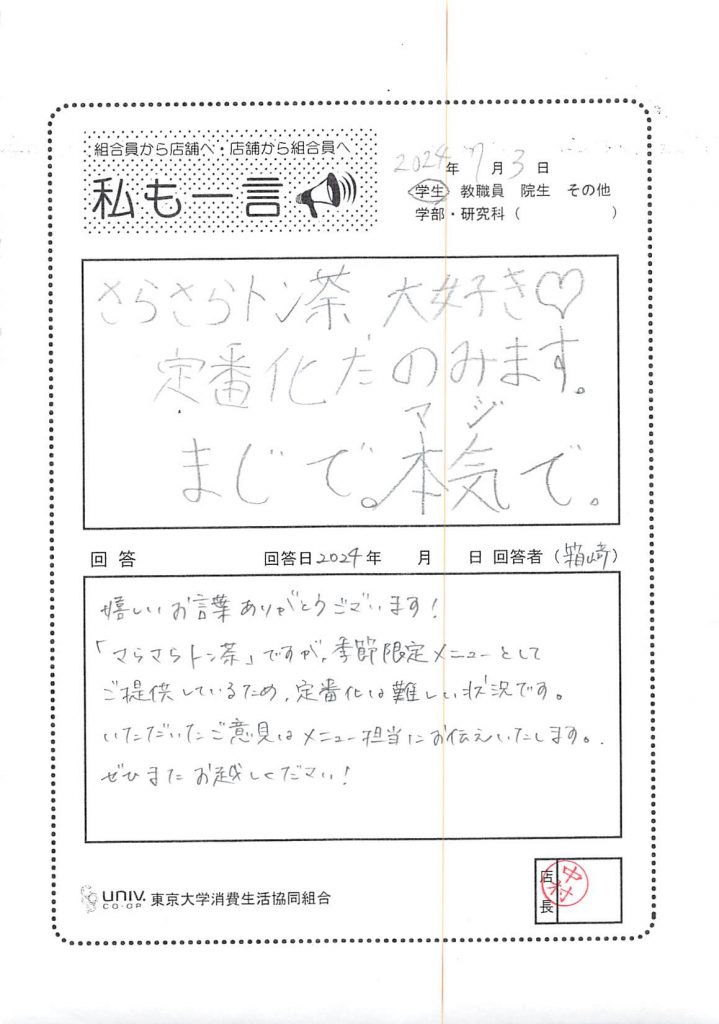 組合員から店舗へ・店舗から組合員へ
私も一言
2024年 7月 3日
学生 教職員 院生 その他
学部・研究科（ ）
さらさらトン茶 大好き♡
定番化たのみます。
マジ
まじで。本気で。
回答 回答日2024年 月 日 回答者（箱崎）
嬉しいお言葉ありがとうございます！
「さらさらトン茶」ですが、季節限定メニューとして
ご提供しているため、定番化は難しい状況です。
いただいたご意見はメニュー担当にお伝えいたします。
ぜひまたお越しください！
UNIV. CO-OP 東京大学消費生活協同組合
店長
中村